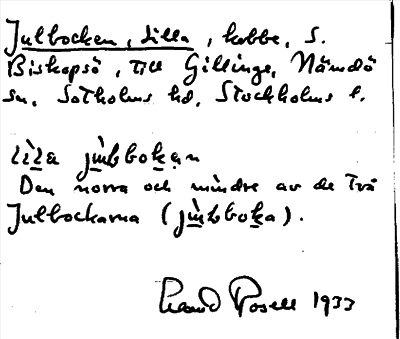 Julbocken, Lilla, kobbe, S.
Biskopsö, till Gillinge, Nämdö
sn, Sotholms hd, Stockholms l.
lìla jùlbokạn
Den norra och mindre av de två
Julbockarna (jùlboka).
Rosell 1933